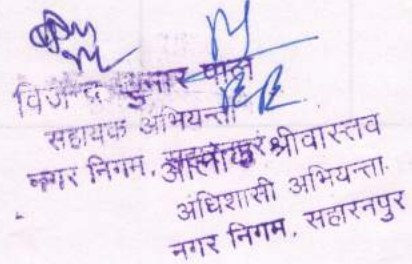 विजेन्द्र कुमार पाल
सहायक अभियन्ता
नगर निगम, सहारनपुर
आलोक श्रीवास्तव
अधिशासी अभियन्ता.
नगर निगम, सहारनपुर